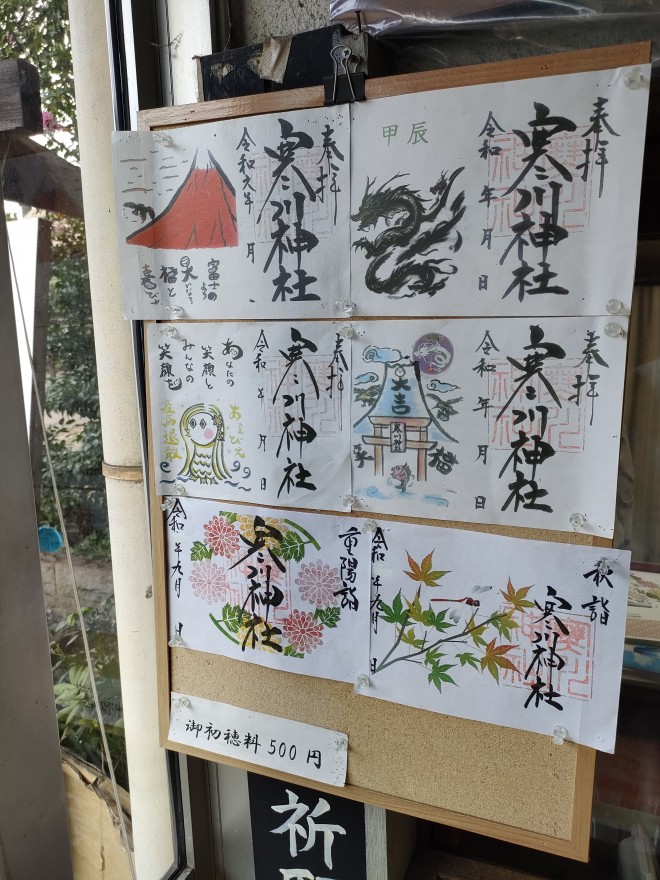 奉拝
寒川神社
令和元年 月
富士の
ように
福と
喜び
甲辰
奉拝
寒川神社
令和 年 月 日
奉拝
寒川神社
令和 年 月 日
あなたの
笑顔と
みんなの
笑顔を
あまびえ
奉拝
寒川神社
令和 年 月 日
大吉
幸
福
重陽詣
寒川神社
令和 年九月 日
秋詣
寒川神社
令和 年九月 日
御初穂料 500 円
祈